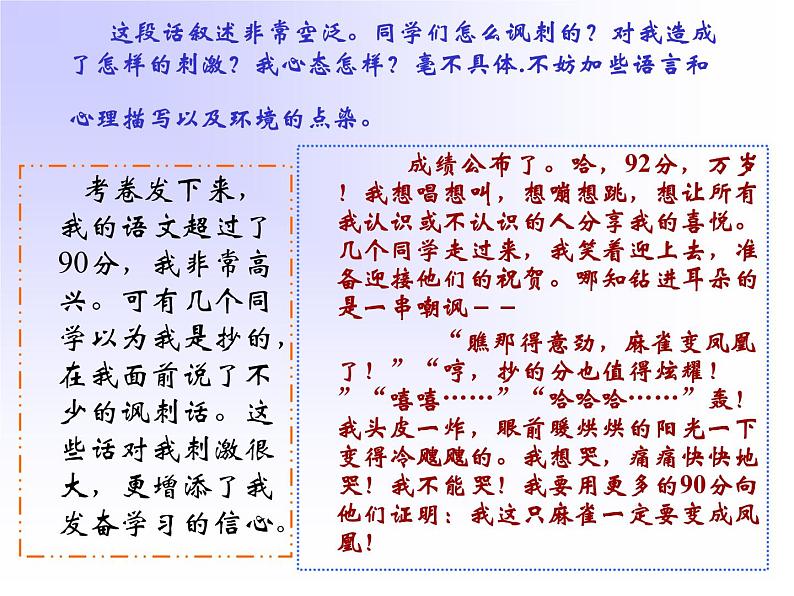 这段话叙述非常空泛。同学们怎么讽刺的？对我造成
了怎样的刺激？我心态怎样？毫不具体.不妨加些语言和
心理描写以及环境的点染。
考卷发下来，
我的语文超过了
90分，我非常高
兴。可有几个同
学以为我是抄的，
在我面前说了不
少的讽刺话。这
些话对我刺激很
大，更增添了我
发奋学习的信心。
成绩公布了。哈，92分，万岁
！我想唱想叫，想嘣想跳，想让所有
我认识或不认识的人分享我的喜悦。
几个同学走过来，我笑着迎上去，准
备迎接他们的祝贺。哪知钻进耳朵的
是一串嘲讽－－
“瞧那得意劲，麻雀变凤凰
了！”“哼，抄的分也值得炫耀！
”“嘻嘻……”“哈哈哈……”轰！
我头皮一炸，眼前暖烘烘的阳光一下
变得冷飕飕的。我想哭，痛痛快快地
哭！我不能哭！我要用更多的90分向
他们证明：我这只麻雀一定要变成凤
凰！